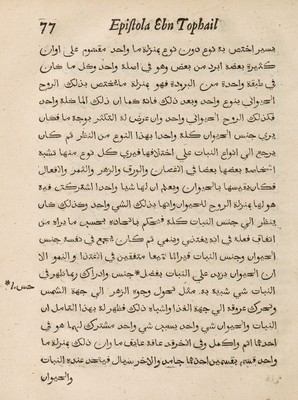 77 Epistola Ebn Tophail
يسير اختص به نوع دون نوع بمنزلة ما واحد مقسوم على اوان
كثيرة بعضه ابرد من بعض وهو في اصله واحد وكل ما كان
في طبقة واحدة من البرودة فهو بمنزلة ما يختص بذلك الروح
الحيواني بنوع واحد وبعد ذلك فانه كما ان ذلك الما كله واحد
فكذلك الروح الحيواني واحد وان عرض له التكثر بوجه ما فكان
يري جنس الحيوان كله واحدا بهذا النوع من النظر ثم كان
يرجع الي انواع النبات على اختلافها فيري كل نوع منها تشبه
اشخاصه بعضها بعضا في الاغصان والورق والزهر والثمر والافعال
فكان يقيسها بالحيوان ويعلم ان لها شيا واحدا اشتركت فيه
هو لها بمنزلة الروح للحيوان وانها بذلك الشي واحد وكذلك كان
ينظر الي جنس النبات كله فيحكم باتحاده بحسب ما يراه من
اتفاق فعله في انه يتغذي وينمي ثم كان يجمع في نفسه جنس
الحيوان وجنس النبات فيراهما جميعا متفقين في الاغتذا والنمو الا
ان الحيوان يزيد على النبات بفضل *جنس وادراك وربما ظهر في
*حس .l
النبات شي شبيه به مثل تحول وجوه الزهر الي جهة الشمس
وتحرك عروقه الي جهة الغذا واشباه ذلك فظهر له بهذا التامل ان
النبات والحيوان شي واحد بسبب شي واحد مشترك لهما هو في
احدهما اتم واكمل وفي الاخر قد عاقه عايق ما وان ذلك بمنزلة ما
واحد قسم بقسمين احدهما جامد والاخر سيال فيتحد عنده النبات
والحيوان